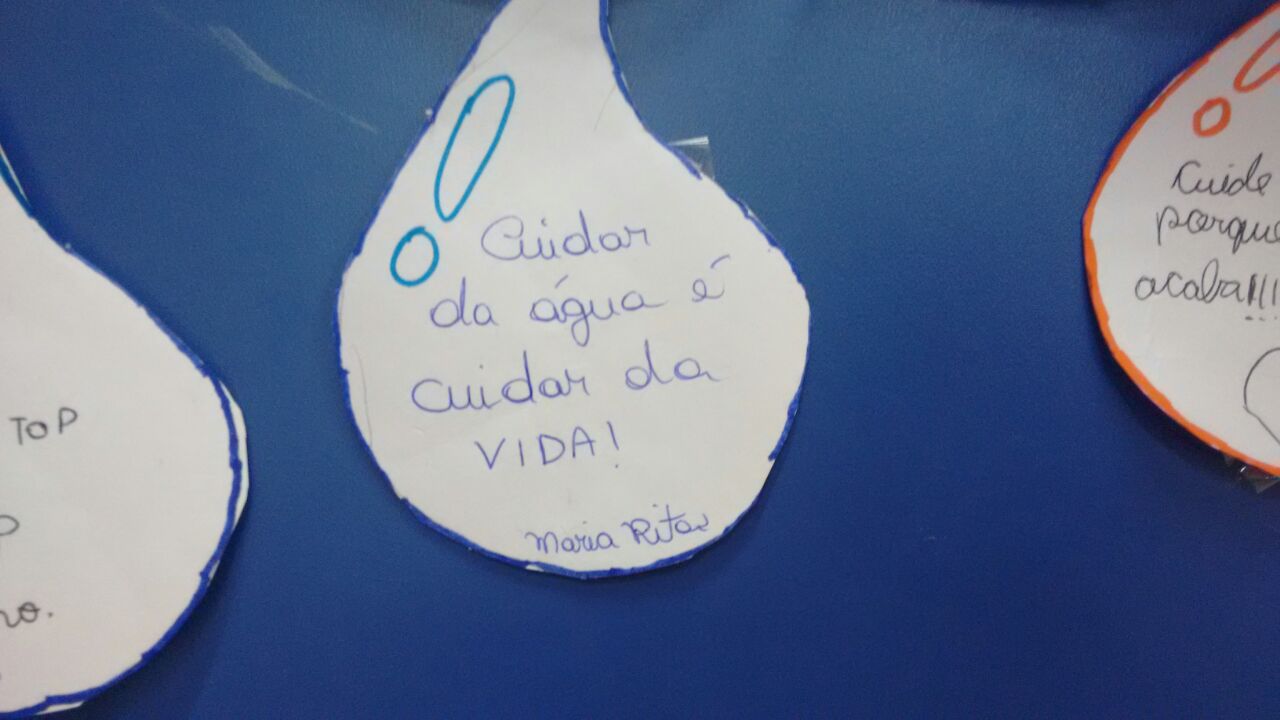 Cuidar
da água é
cuidar da
VIDA!
Maria Rita
TOP
Cuide
porque
acaba!!!